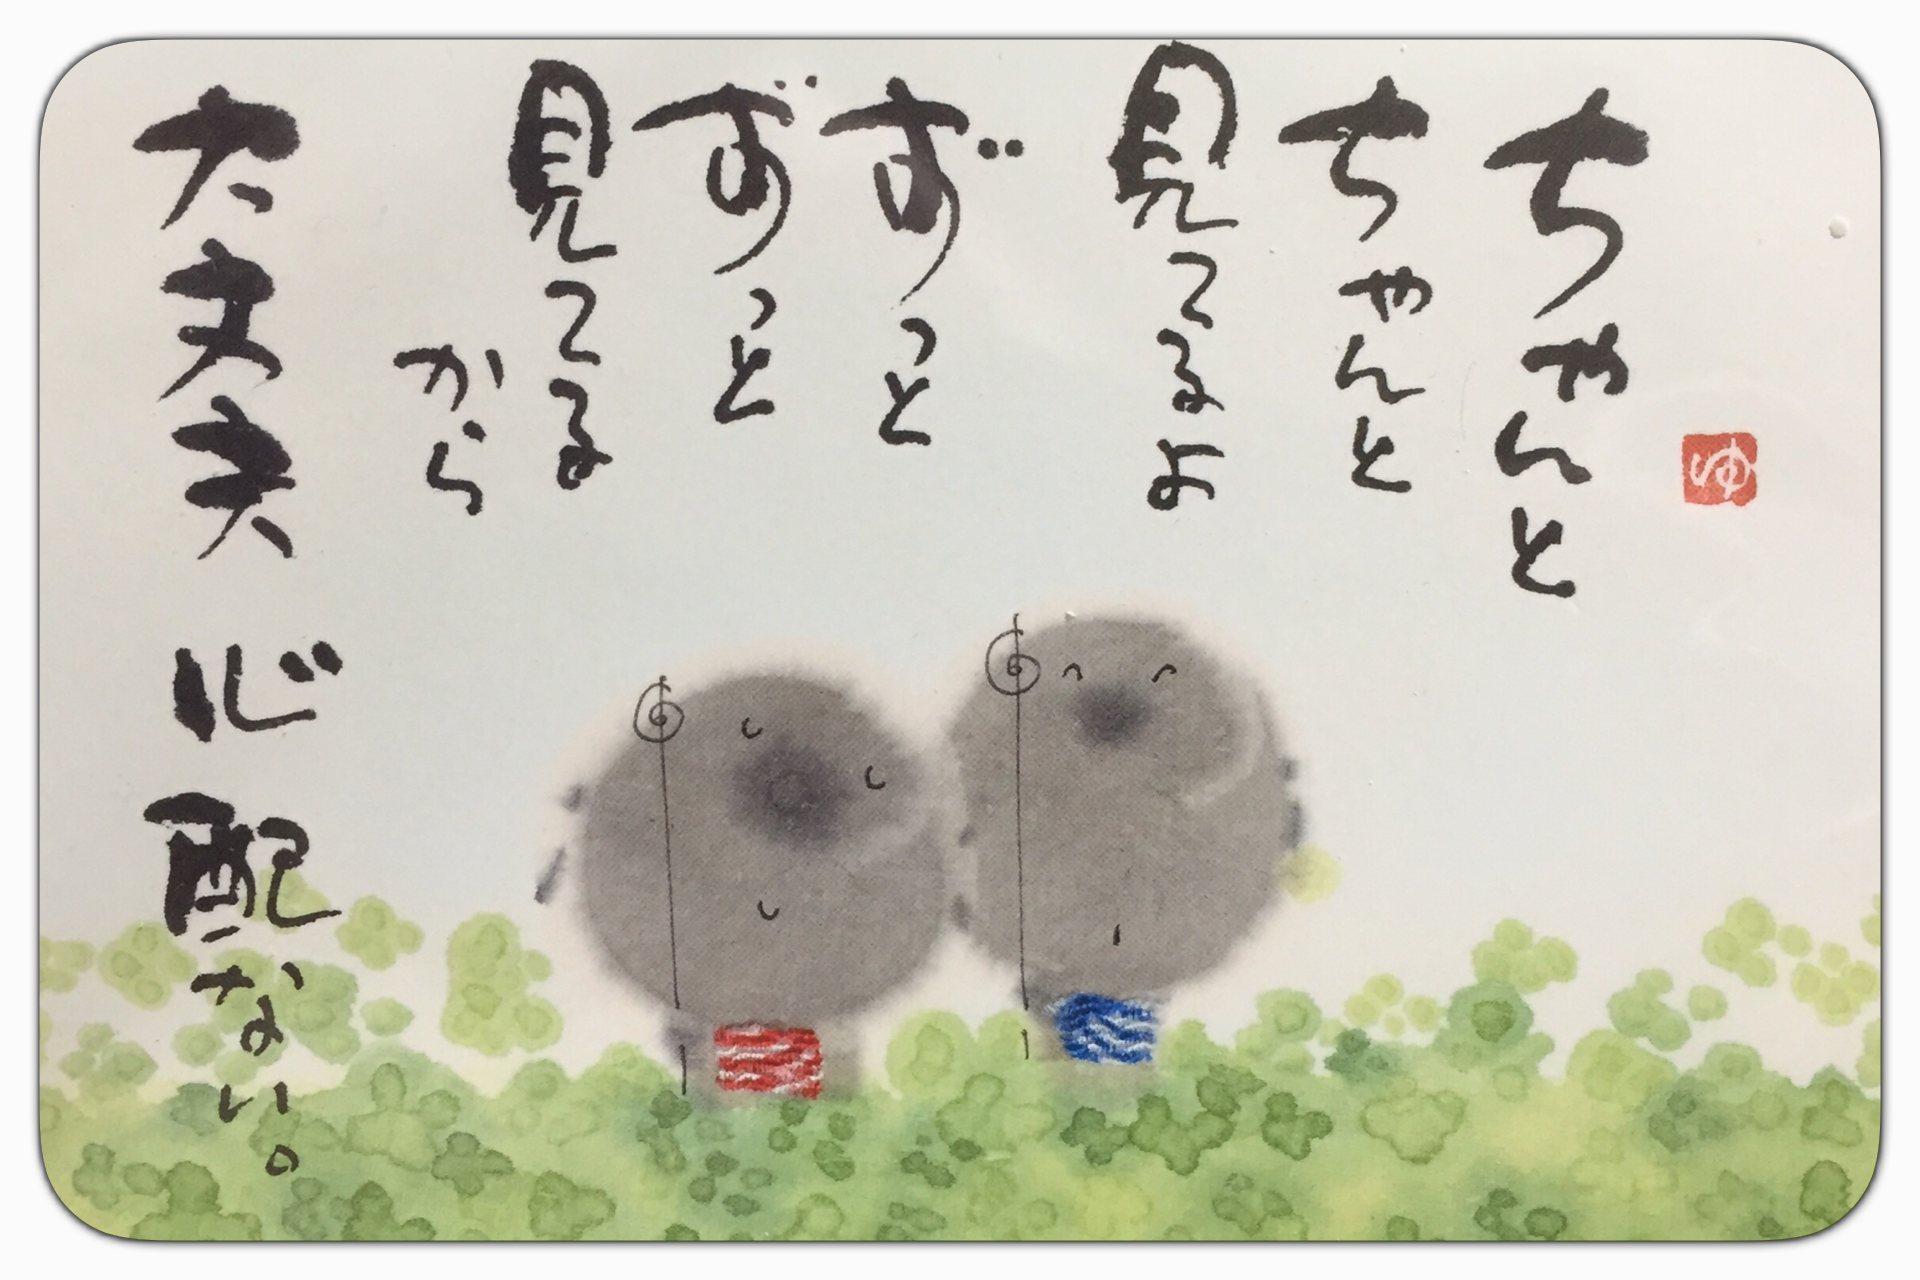 ゆ
ちゃんと
ちゃんと
見てるよ
ずっと
ずっと
見てる
から
大丈夫 心配ない。